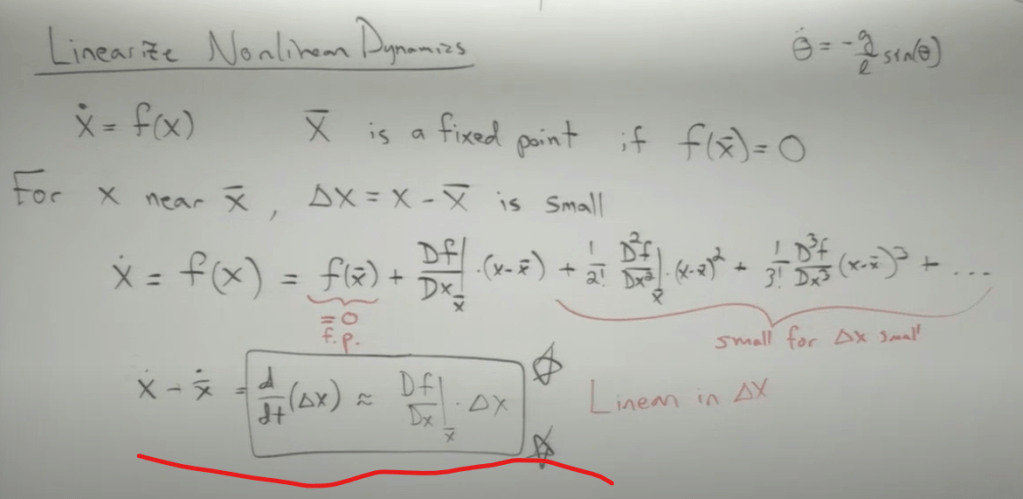 Linearize Nonlinear Dynamics
θ̈ = -g/l sin(θ)
ẋ = f(x)   x̄ is a fixed point if f(x̄) = 0
For x near x̄, Δx = x - x̄ is small
ẋ = f(x) = f(x̄) + Df/Dx|x̄ · (x-x̄) + 1/2! D²f/Dx²|x̄ · (x-x̄)² + 1/3! D³f/Dx³ (x-x̄)³ + ...
= 0
f.p.
small for Δx small
ẋ - ẋ̄ = d/dt (Δx) ≈ Df/Dx|x̄ · Δx
Linear in Δx